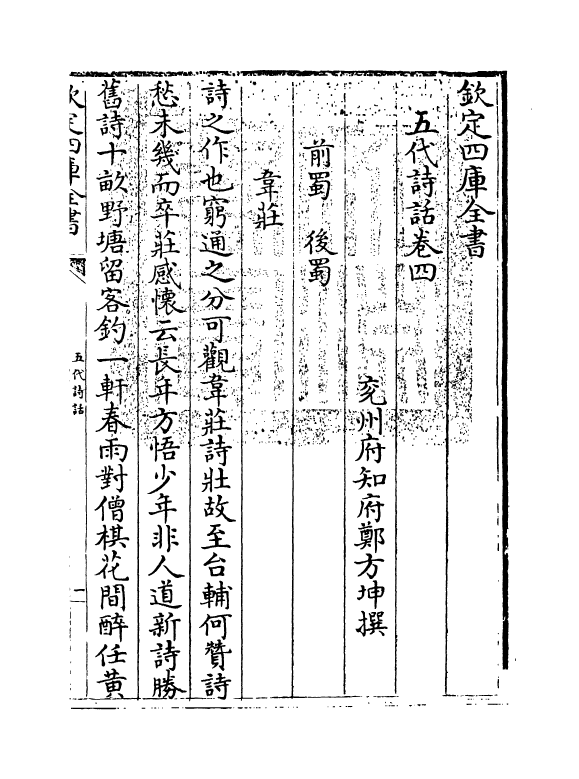 欽定四庫全書
五代詩話卷四
兖州府知府鄭方坤撰
前蜀　後蜀
韋莊
詩之作也窮通之分可觀韋莊詩壯故至台輔何贊詩
愁未幾而卒莊感懷云長年方悟少年非人道新詩勝
舊詩十畝野塘留客釣一軒春雨對僧棋花間醉任黄
欽定四庫全書
五代詩話